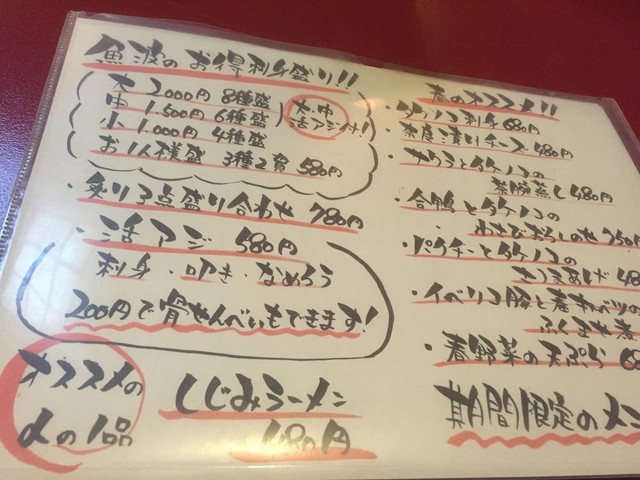 魚波のお得刺身盛り!!
大 2000円 8種盛
中 1.500円 6種盛
小 1.000円 4種盛
大.中
活アジ付!
お1人様盛 3種2貫 580円
・炙り3点盛り合わせ 780円
・活アジ 580円
刺身・叩き・なめろう
200円で骨せんべいもできます!
オススメの
〆の1品
しじみラーメン
480円
春のオススメ!!
・タケノコ刺身 680円
・味噌漬けチーズ 480円
・サワラとタケノコの
茶碗蒸し 480円
・合鴨とタケノコの
わさびおろしのせ 750
・パクチーとタケノコの
さつまあげ 48
・イベリコ豚と春キャベツの
ふくまや煮
・春野菜の天ぷら 68
期間限定のメニ